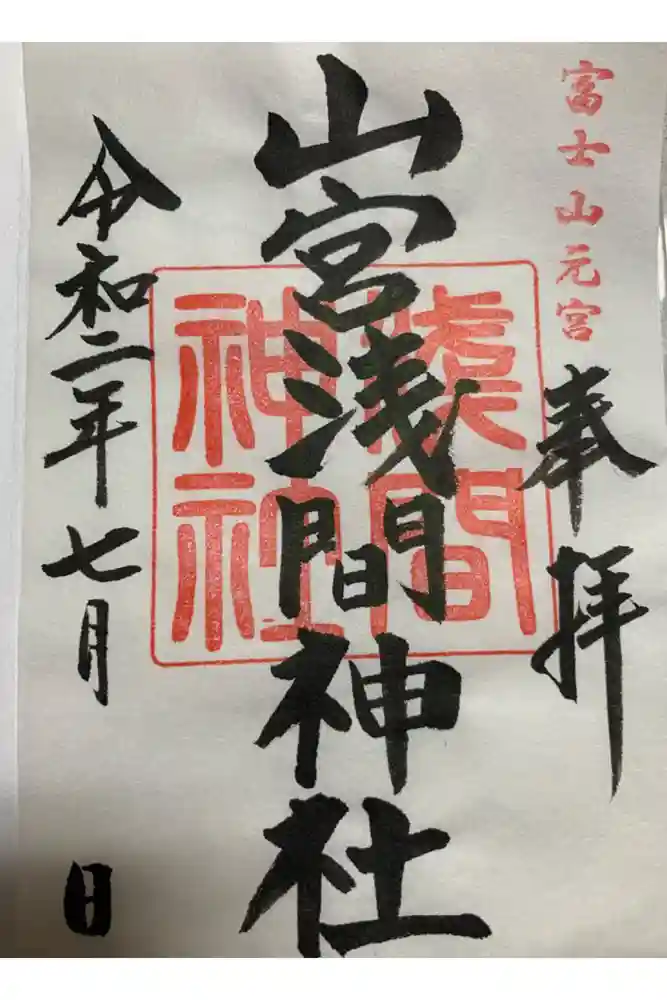 富士山元宮
奉拝
山宮浅間神社
浅間
神社
令和二年七月 日